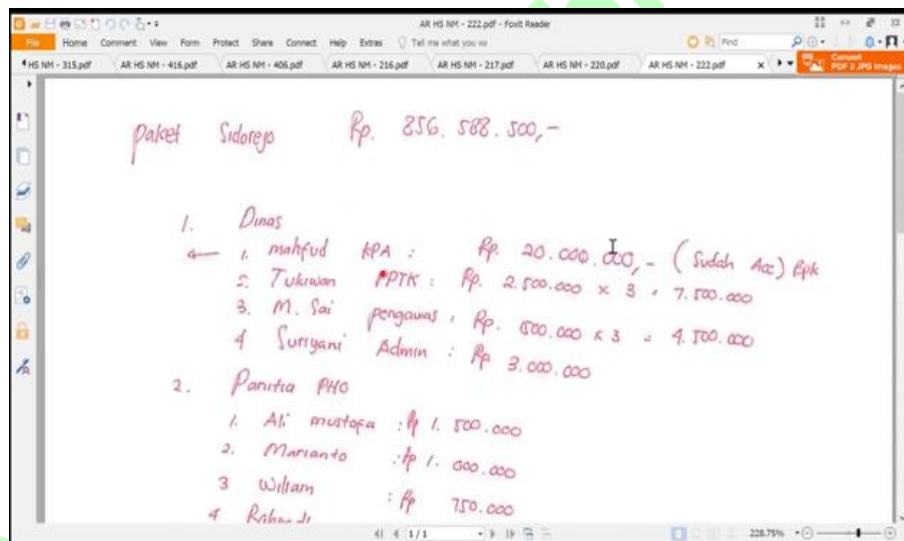 AR HS NM - 222.pdf - Foxit Reader
File Home Comment View Form Protect Share Connect Help Extras Tell me what you wa Find
HS NM - 315.pdf AR HS NM - 416.pdf AR HS NM - 406.pdf AR HS NM - 216.pdf AR HS NM - 217.pdf AR HS NM - 220.pdf AR HS NM - 222.pdf x Convert
PDF 2 JPG Images
paket Sidorejo Rp. 856.588.500,-
1. Dinas
1. mahfud KPA : Rp. 20.000.000,- (Sudah Acc) Bpk
2. Tukiwan PPTK : Rp. 2.500.000 x 3 = 7.500.000
3. M. Sai pengawas : Rp. 1500.000 x 3 = 4.500.000
4 Suriyani Admin : Rp 3.000.000
2. Panitia PHO
1. Ali mustofa : Rp 1.500.000
2. Marianto : Rp 1.000.000
3 William : Rp 750.000
4
1 / 1 228.75%